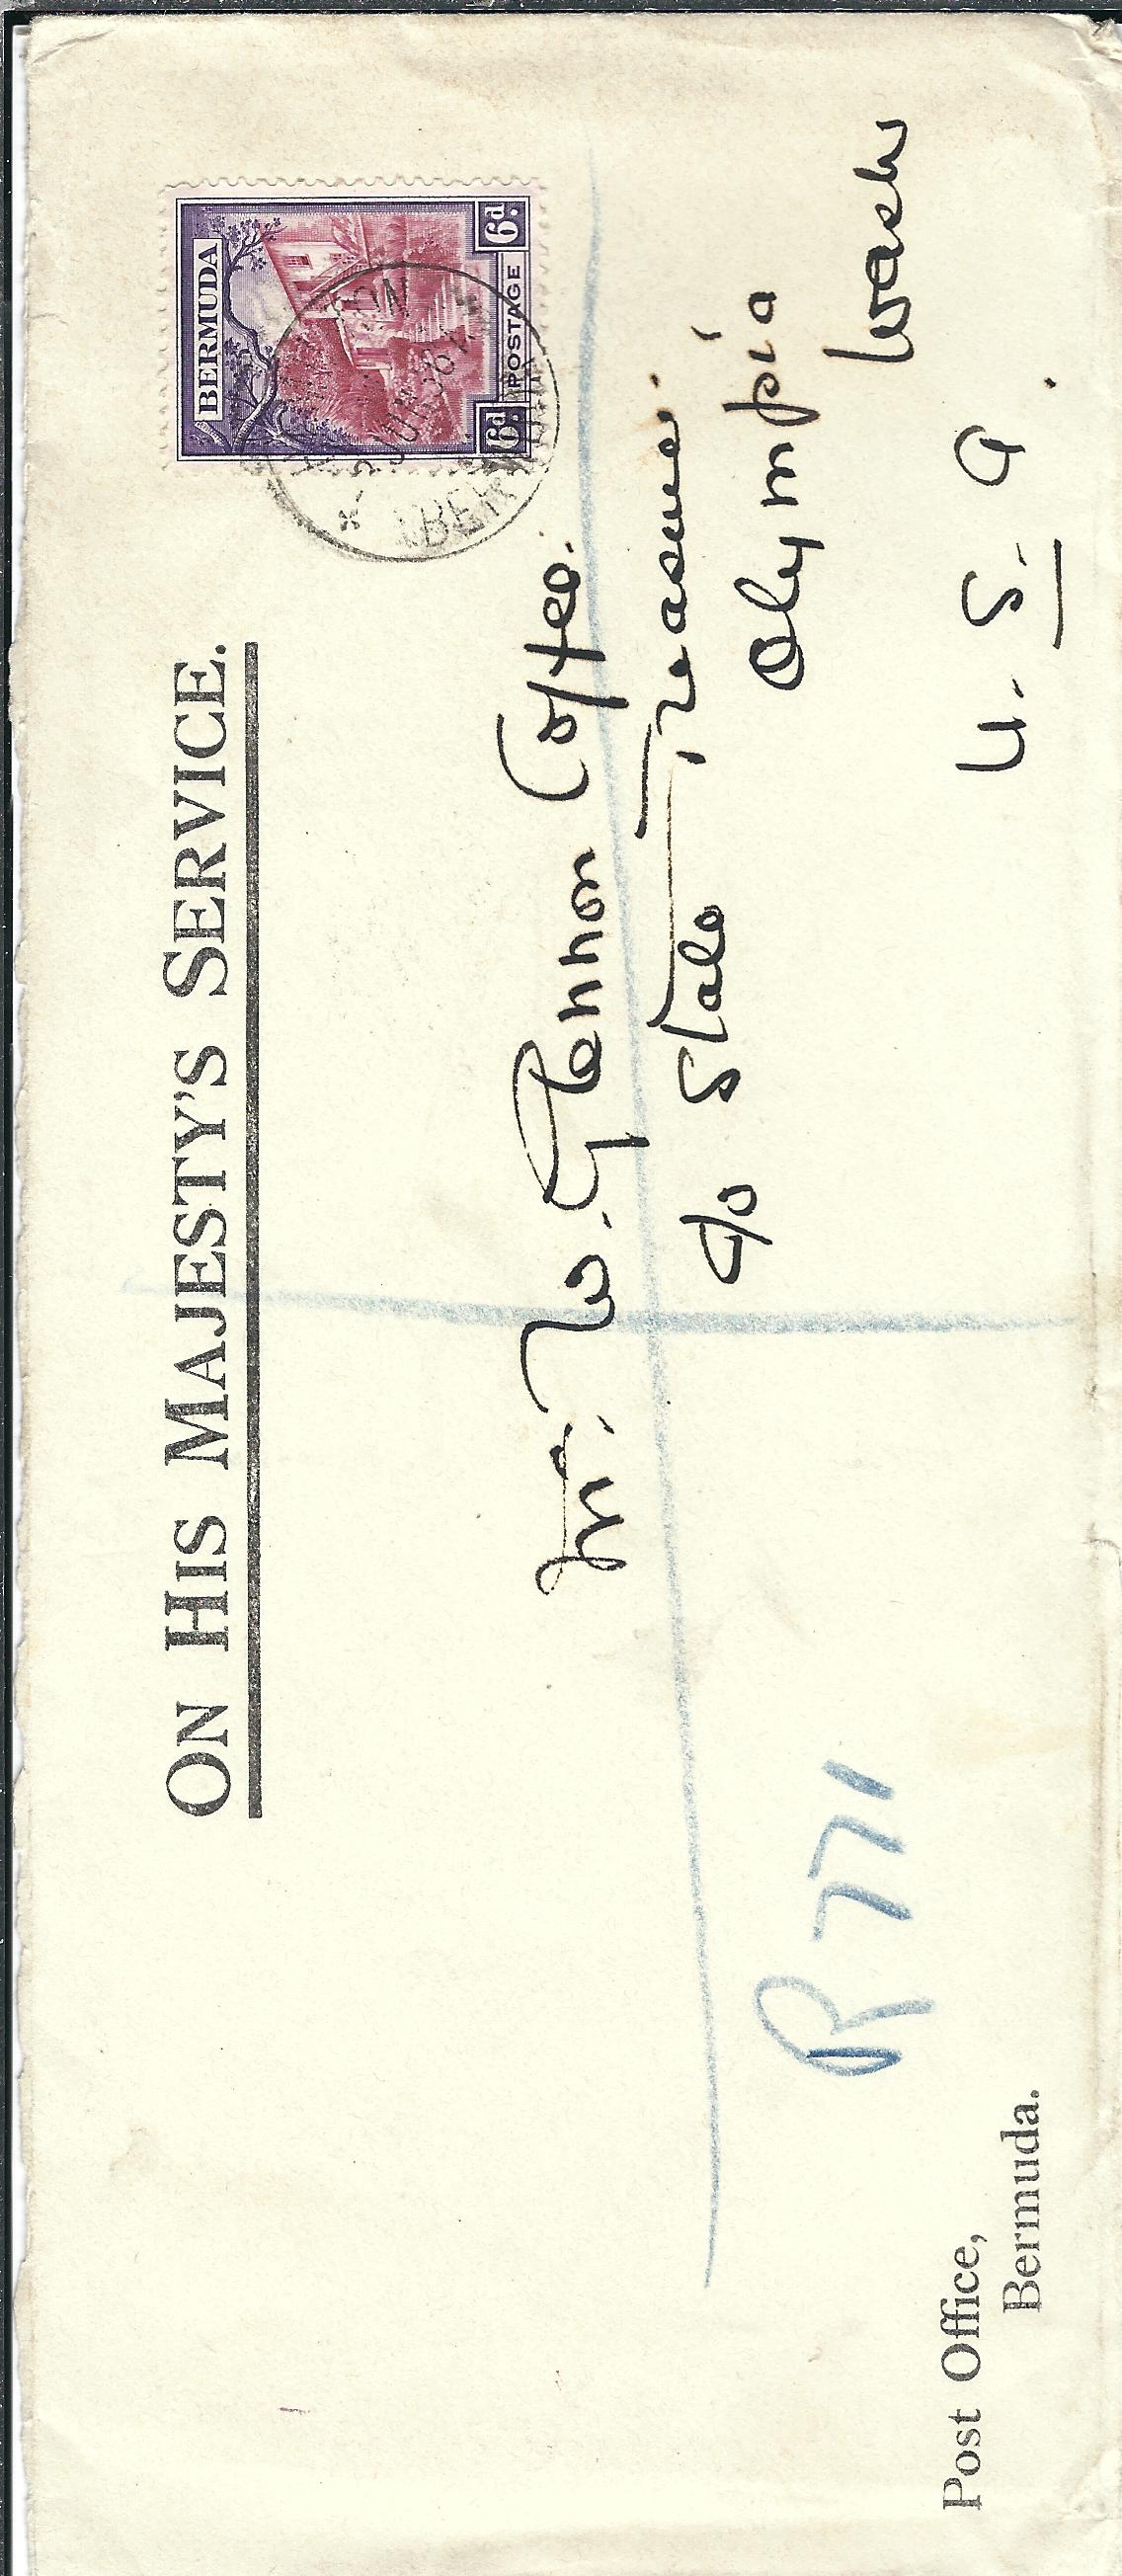 ON HIS MAJESTY'S SERVICE.
BERMUDA
6d. POSTAGE 6d.
JUN 36
Mr. W. Glennon Cotter.
c/o State Treasurer
Olympia
Wash
U. S. A.
R 771
Post Office,
Bermuda.